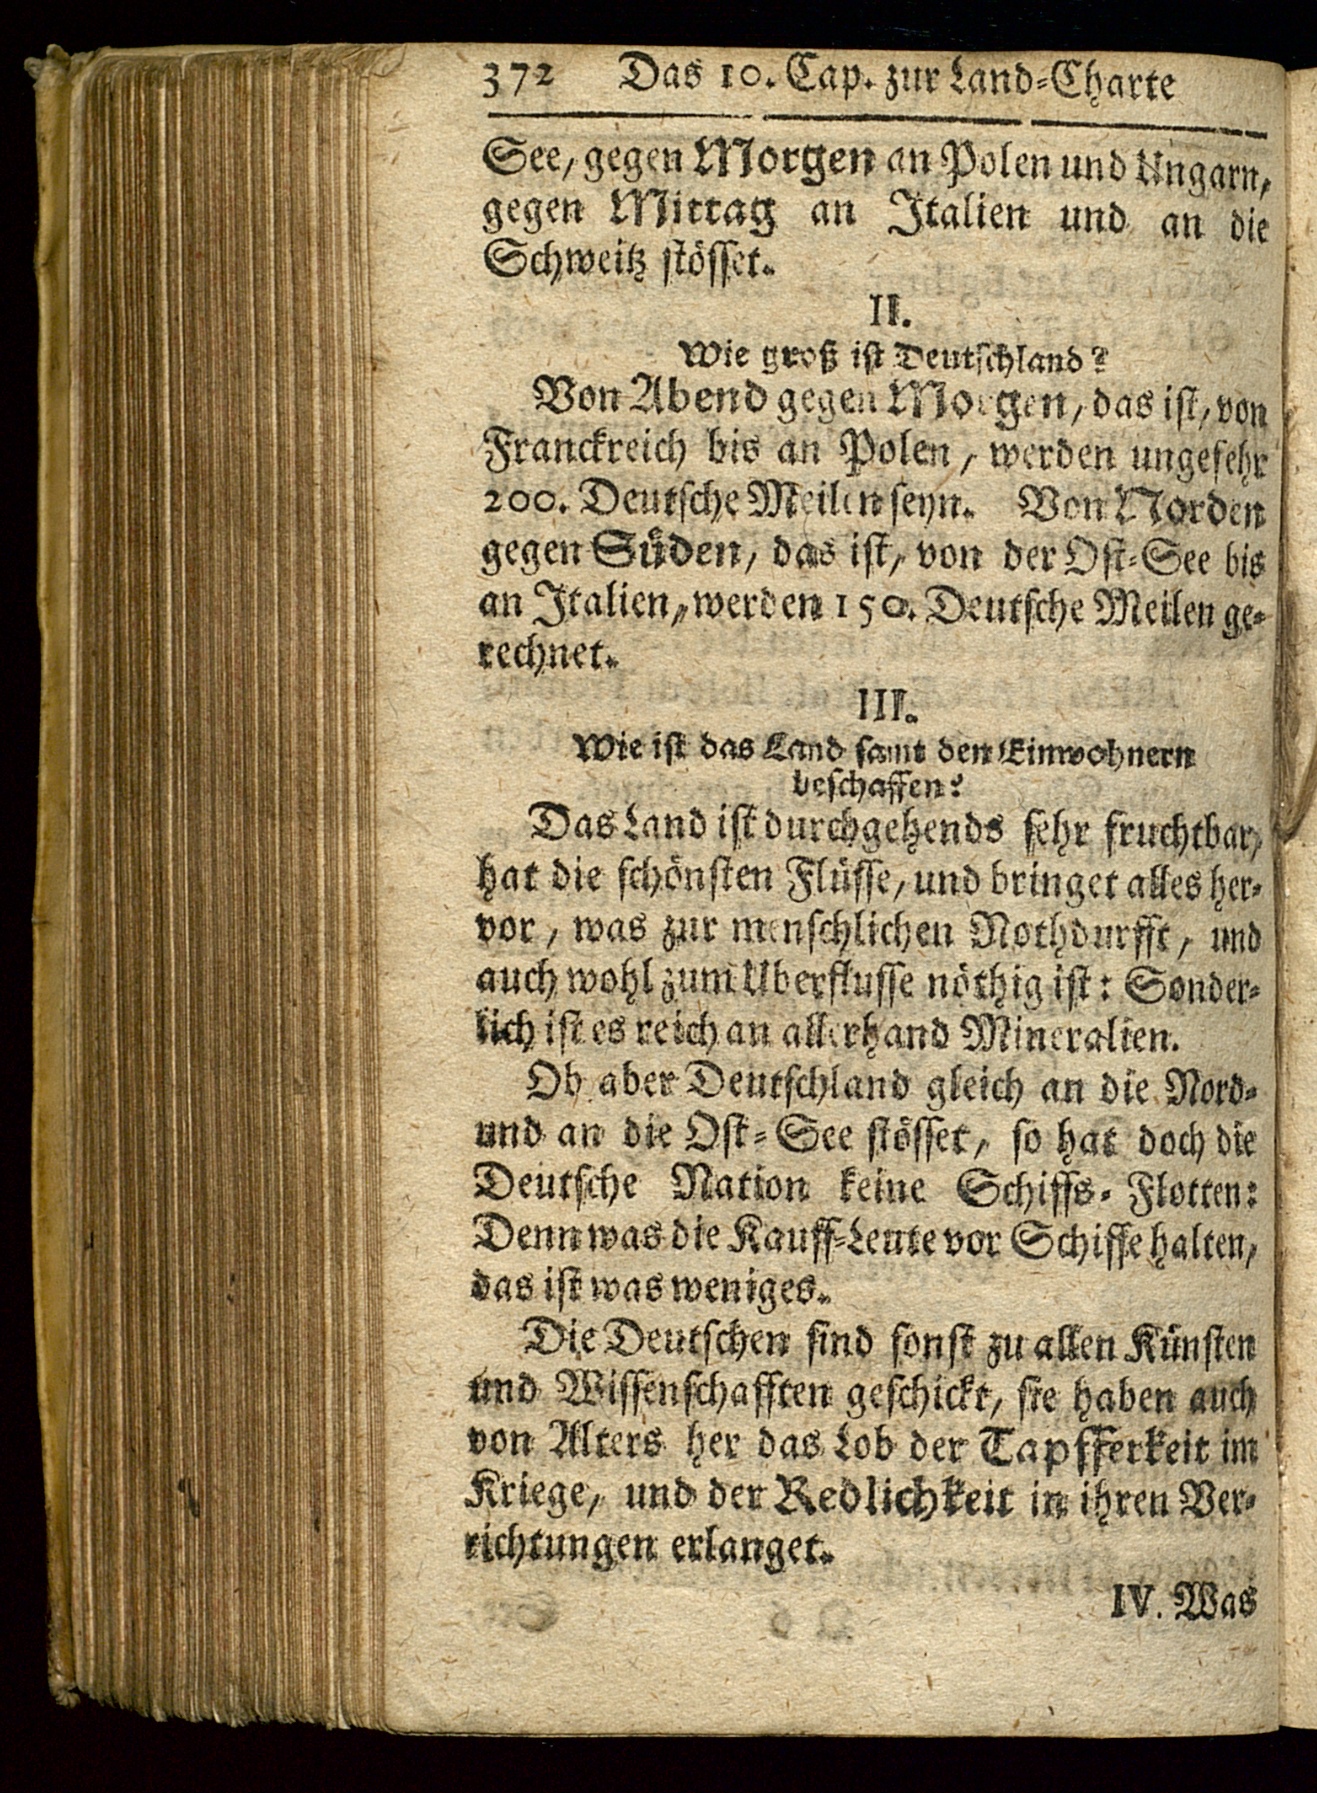 372 Das 10. Cap. zur Land-Charte
See, gegen Morgen an Polen und Ungarn,
gegen Mittag an Italien und an die
Schweitz stösset.
II.
Wie groß ist Deutschland?
Von Abend gegen Morgen, das ist, von
Franckreich bis an Polen, werden ungefehr
200. Deutsche Meilen seyn. Von Norden
gegen Süden, das ist, von der Ost-See bis
an Italien, werden 150. Deutsche Meilen ge-
rechnet.
III.
Wie ist das Land samt den Einwohnern
beschaffen?
Das Land ist durchgehends sehr fruchtbar,
hat die schönsten Flüsse, und bringet alles her-
vor, was zur menschlichen Nothdurfft, und
auch wohl zum Uberflusse nöthig ist: Sonder-
lich ist es reich an allerhand Mineralien.
Ob aber Deutschland gleich an die Nord-
und an die Ost-See stösset, so hat doch die
Deutsche Nation keine Schiffs-Flotten:
Denn was die Kauff-Leute vor Schiffe halten,
das ist was weniges.
Die Deutschen sind sonst zu allen Künsten
und Wissenschafften geschickt, sie haben auch
von Alters her das Lob der Tapfferkeit im
Kriege, und der Redlichkeit in ihren Ver-
richtungen erlanget.
IV. Was